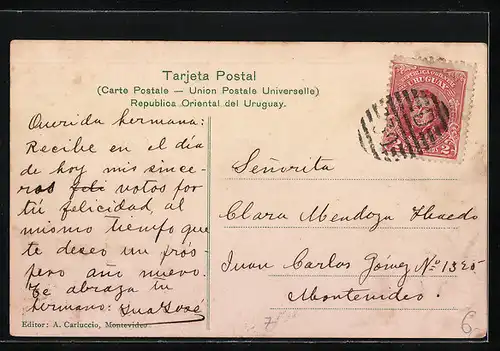 Tarjeta Postal
(Carte Postale — Union Postale Universelle)
Republica Oriental del Uruguay.
URUGUAY
Querida hermana:
Recibe en el día
de hoy mis since-
ros feli votos for
tú felicidad, al
mismo tiempo que
te deseo un prós
pero año nuevo.
Te abraza tu
hermano: Juan José
Señorita
Clara Mendoza
Juan Carlos Gómez Nº 1325
Montevideo.
Editor: A. Carluccio, Montevideo